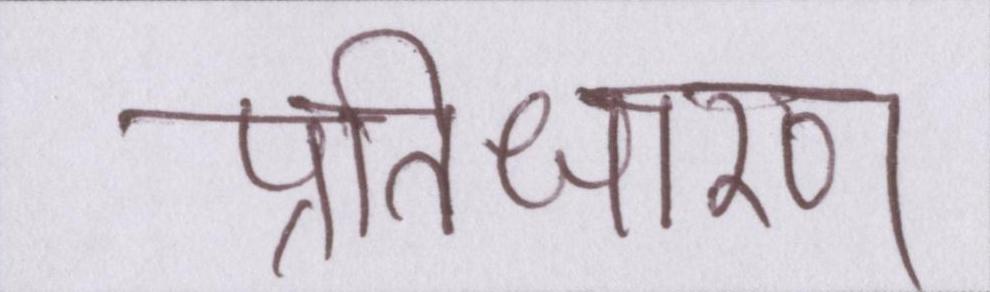 प्रतिधारण